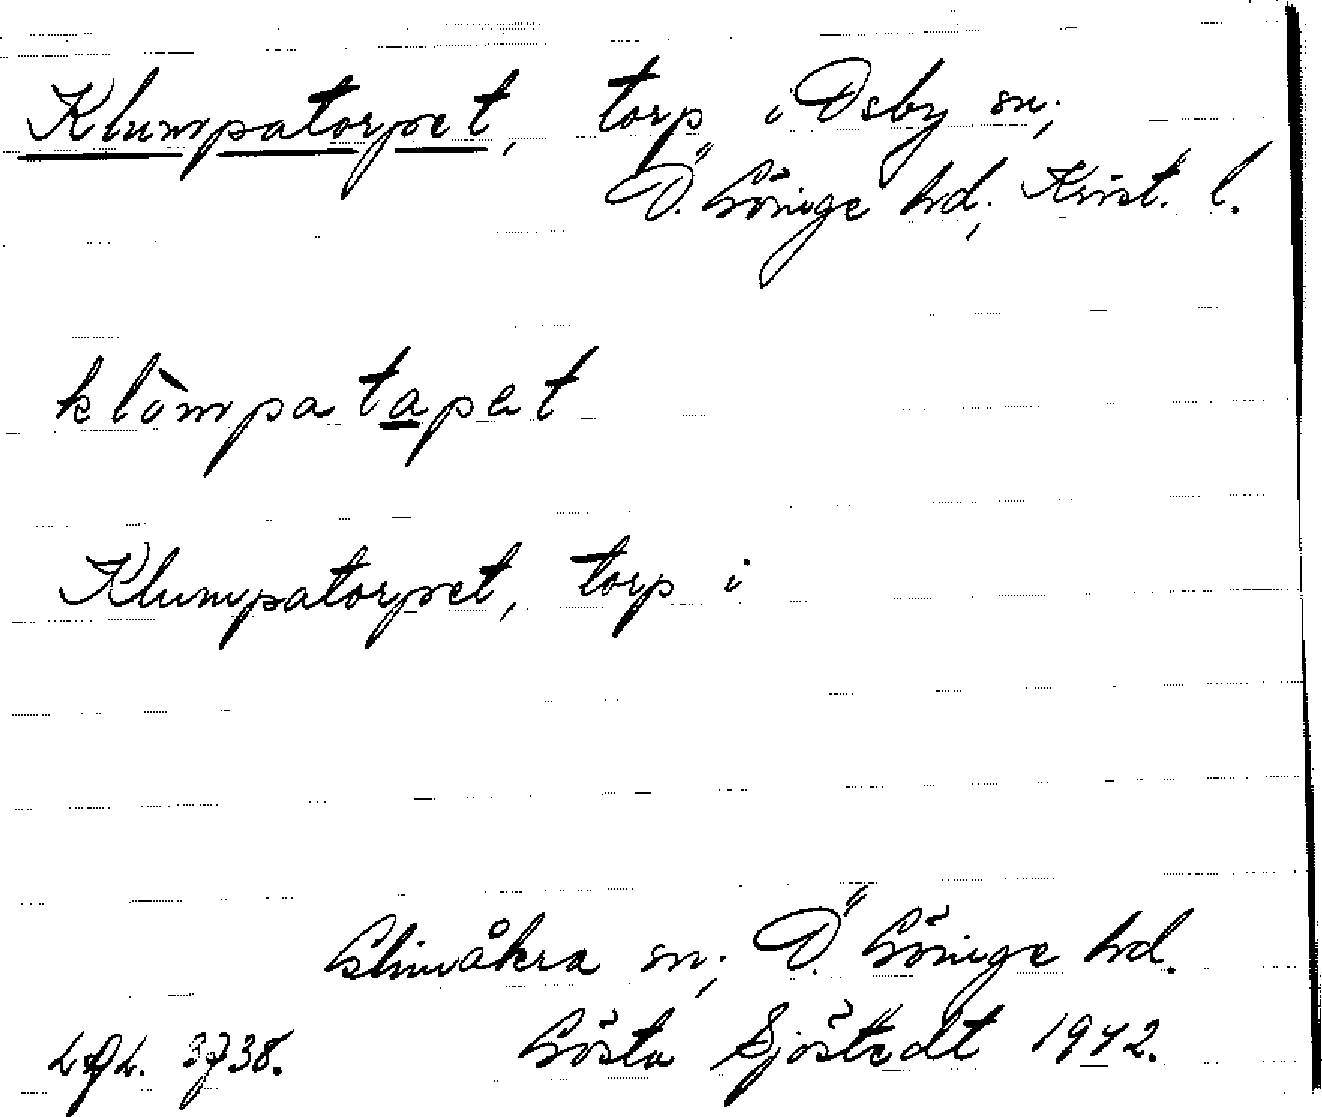 Klumpatorpet, torp i Osby sn;
Ö. Göinge hd; Krist. l.
klòmpatapet
Klumpatorpet, torp i
Glimåkra sn; Ö. Göinge hd.
Gösta Sjöstedt 1942.